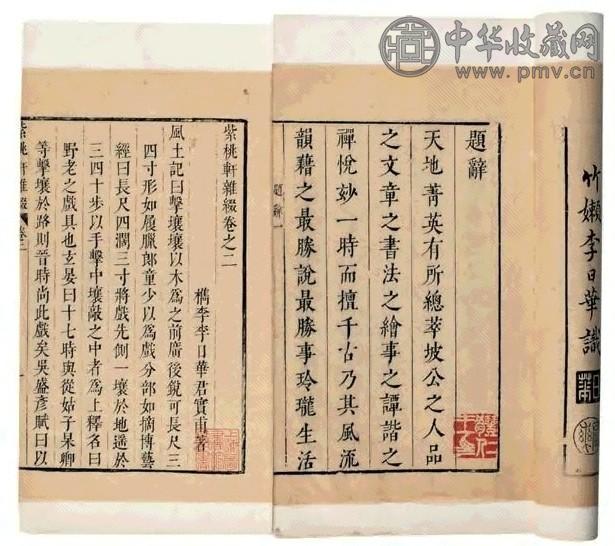 中华收藏网
www.pmv.cn
竹嬾李日華識
題辭
天地菁英有所總萃坡公之人品
之文章之書法之繪事之譚諧之
禪悅妙一時而擅千古乃其風流
韻藉之最勝說最勝事玲瓏生活
題辭一
紫桃軒雜綴卷之二
檇李李日華君實甫著
風土記曰擊壤壤以木爲之前廣後銳可長尺三
四寸形如履臘郎童少以爲戲分部如摘博藝
經曰長尺四濶三寸將戲先側一壤於地遙於
三四十步以手擊中壤敲之中者爲上釋名曰
野老之戲具也玄晏曰十七時與從姑子杲卿
等擊壤於路則晉時尚此戲矣吳盛彥賦曰以
紫桃軒雜綴 卷二